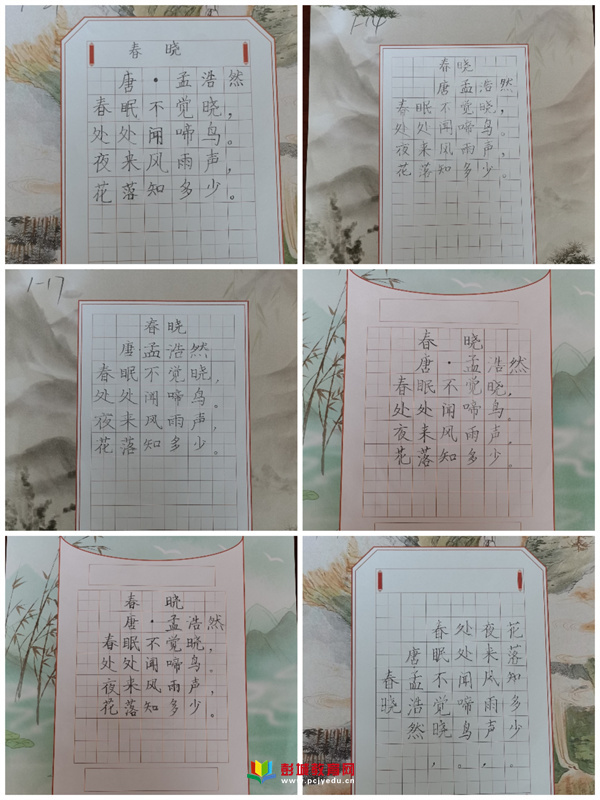 春晓
唐·孟浩然
春眠不觉晓，
处处闻啼鸟。
夜来风雨声，
花落知多少。
1-14
春晓
唐孟浩然
春眠不觉晓，
处处闻啼鸟。
夜来风雨声，
花落知多少。
1-17
春晓
唐孟浩然
春眠不觉晓，
处处闻啼鸟。
夜来风雨声，
花落知多少。
春晓
唐·孟浩然
春眠不觉晓，
处处闻啼鸟。
夜来风雨声，
花落知多少
春晓
唐·孟浩然
春眠不觉晓，
处处闻啼鸟。
夜来风雨声，
花落知多少。
春晓
唐孟浩然
春眠不觉晓，
处处闻啼鸟。
夜来风雨声，
花落知多少。
彭城教育网
www.pcjyedu.cn